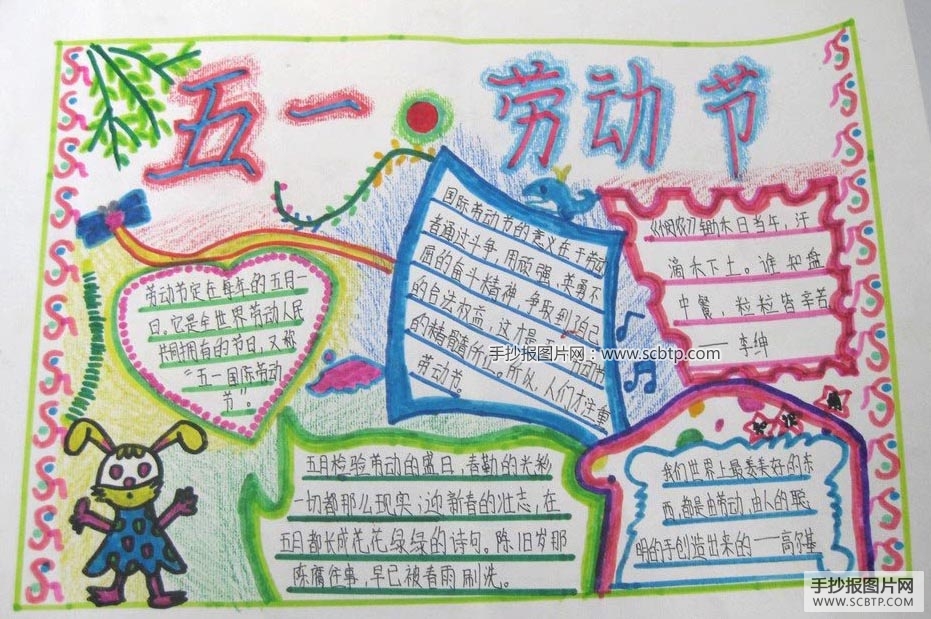 五一 劳动节
劳动节定在每年的五月一
日。它是全世界劳动人民
共同拥有的节日,又称
“五一国际劳动
节”。
国际劳动节的意义在于劳动
者通过斗争,用顽强、英勇不
屈的奋斗精神,争取到自己
的合法权益,这才是
的精髓所在。所以,人们才注重
劳动节。
《悯农》锄禾日当午,汗
滴禾下土。谁知盘
中餐,粒粒皆辛苦
——李绅
手抄报图片网:www.scbtp.com
五月检验劳动的盛日,春勤的光彩
一切都那么现实;迎新春的壮志,在
五日都长成花花绿绿的诗句。陈旧岁那
陈腐往事,早已被春雨刷洗。
我们世界上最美好的东
西,都是由劳动,由人的聪
明的手创造出来的——高尔基
手抄报图片网
WWW.SCBTP.COM